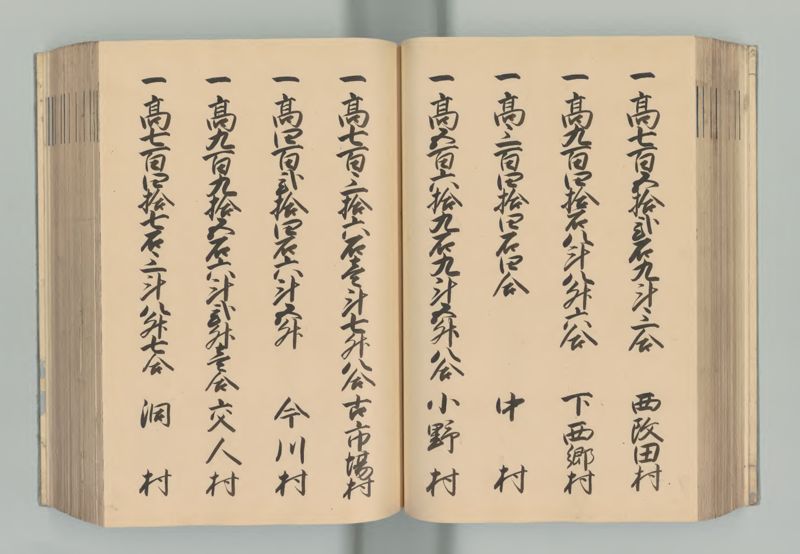 一高七百五拾弐石九斗三合 西改田村
一高九百四拾石八斗八升六合 下西郷村
一高三百四拾四石四合 中村
一高五百六拾九石九斗五升八合 小野村
一高七百三拾六石壱斗七升八合 古市場村
一高四百弐拾四石六斗五升 今川村
一高九百九拾五石六斗弐升壱合 交人村
一高七百四拾七石三斗八升七合 洞村